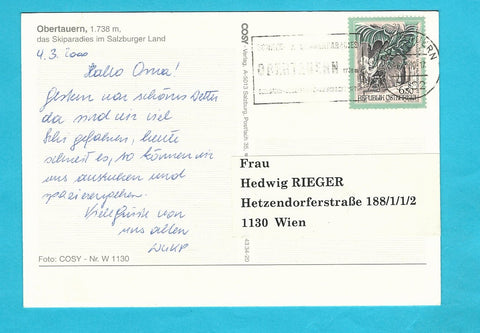 Obertauern, 1.738 m,
das Skiparadies im Salzburger Land
4.3.2000
Hallo Oma!
Gestern war schönes Wetter
da sind wir viel
Ski gefahren, heute
schneit es, so können wir
uns ausruhen und
spazierengehen.
Viele Grüße von
uns allen
Foto: COSY - Nr. W 1130
COSY Verlag, A-5013 Salzburg, Postfach 35,
4334-20
OBERTAUERN
REPUBLIK ÖSTERREICH
Frau
Hedwig RIEGER
Hetzendorferstraße 188/1/1/2
1130 Wien